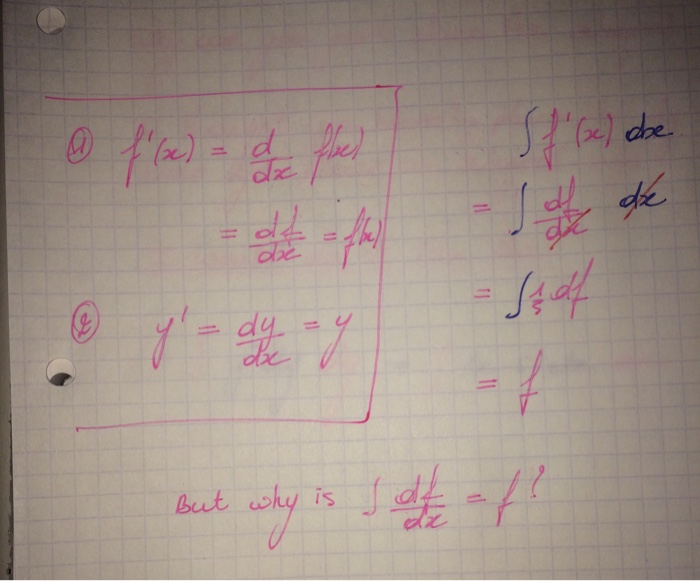 ① f'(x) = d/dx f(x)
= df/dx = f(x)
② y' = dy/dx = y
∫ f'(x) dx
= ∫ df/dx dx
= ∫ df
= f
But why is ∫ df/dx = f?